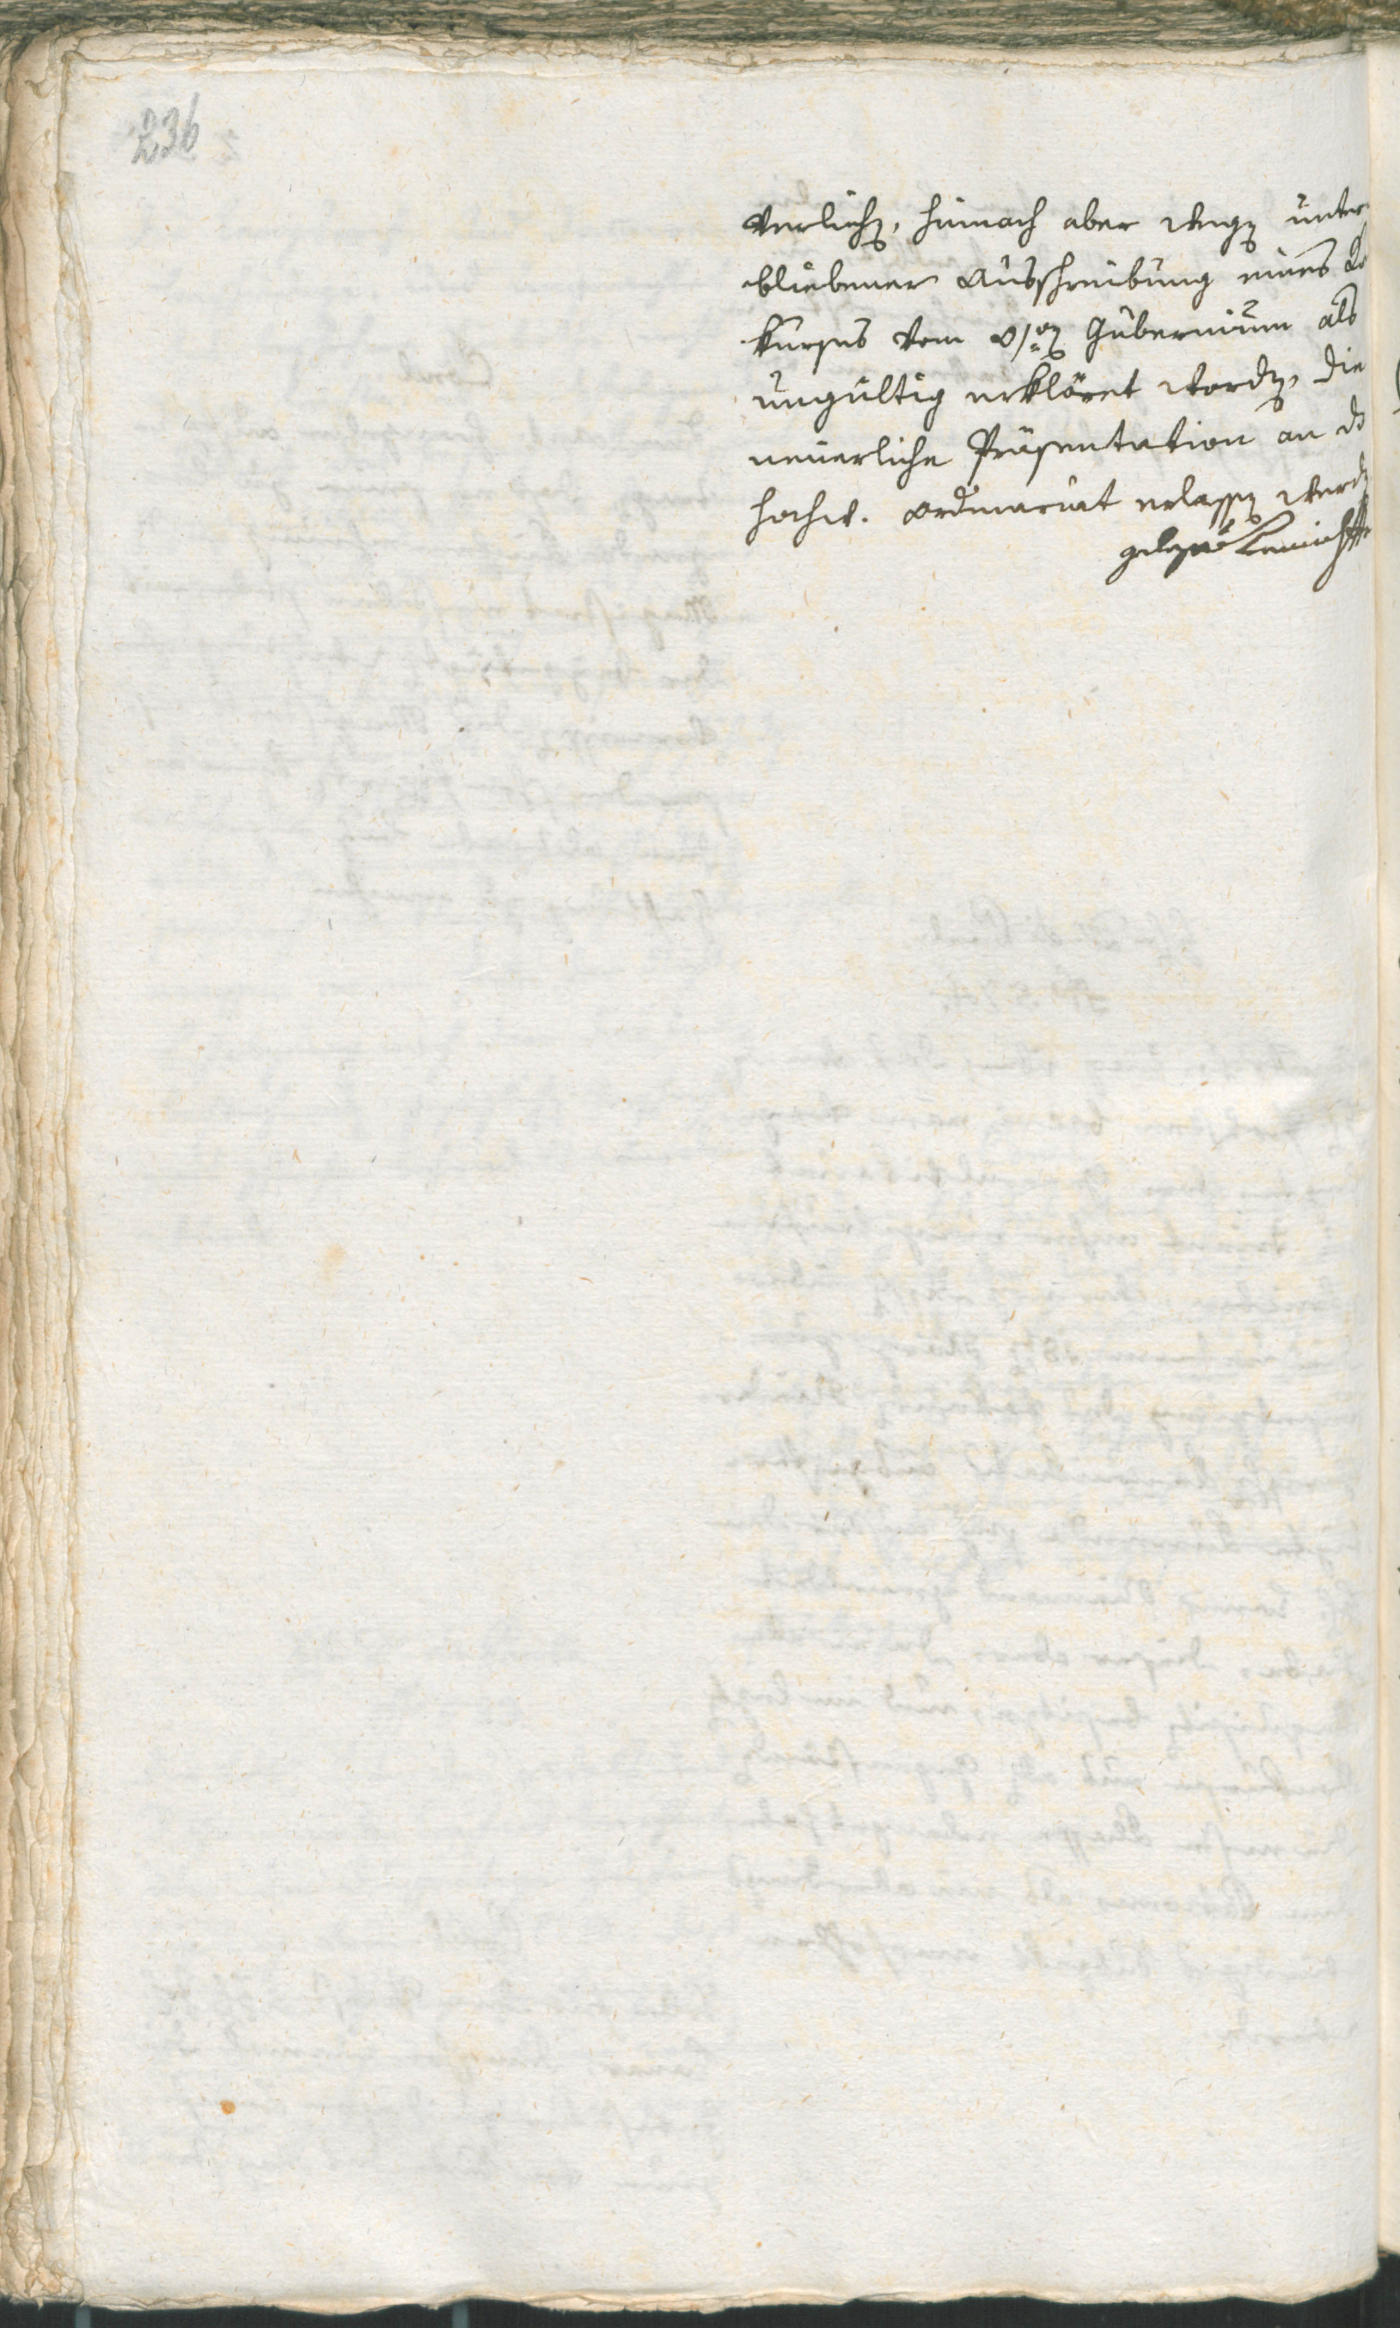 236
verliehen, hiernach aber wegen unter
bliebener Ausschreibung eines Ko
kurses vom Gubernium als
ungültig erkläret worden, die
neuerliche Präsentation an d
hochw. Ordinariat erlassen werd